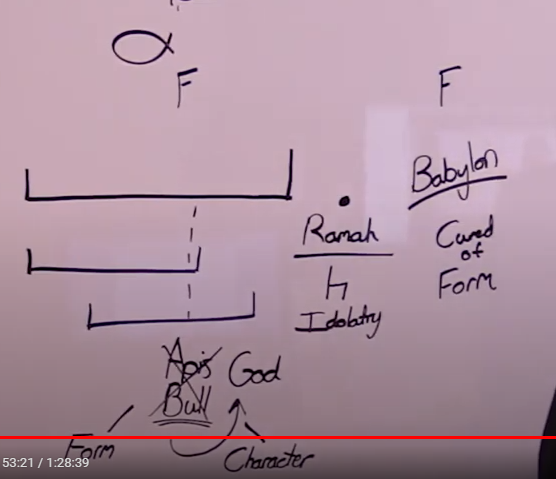 F
F
Babylon
Ramah
Cured
of
Form
Idolatry
Apis
Bull
God
Form
Character
53:21 / 1:28:39